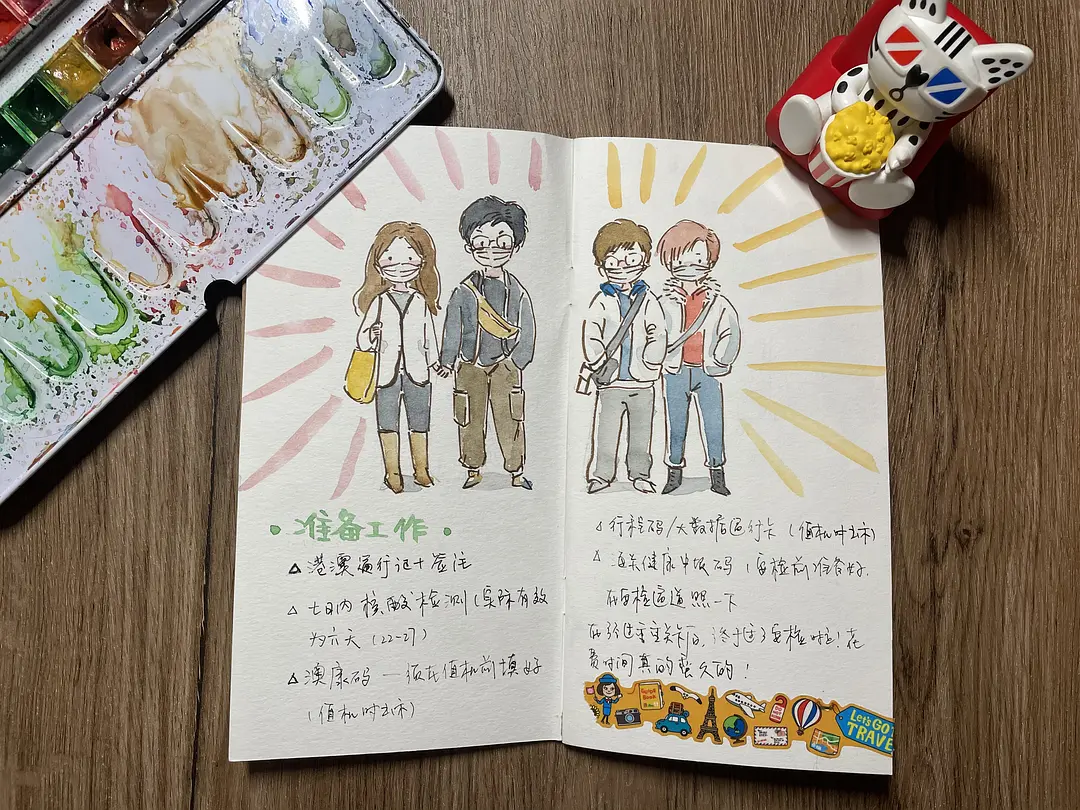 准备工作
△ 港澳通行证+签注
△ 七日内核酸检测(实际有效
为六天(22-27)
△ 澳康码 — 须在值机前填好
(值机时出示)
△ 行程码/大数据通行卡(值机时出示)
△ 通关健康申报码(安检前准备好,
在安检通道照一下
在经过重重关卡后,终于过了安检啦!花
费时间真的蛮久的!
Let's GO
TRAVE